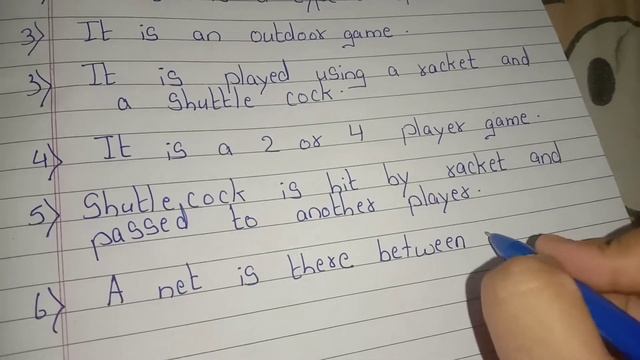 3) It is an outdoor game.
3) It is played using a racket and
a Shuttle cock.
4) It is a 2 or 4 player game.
5) Shutle,cock is hit by racket and
passed to another player.
6) A net is there between